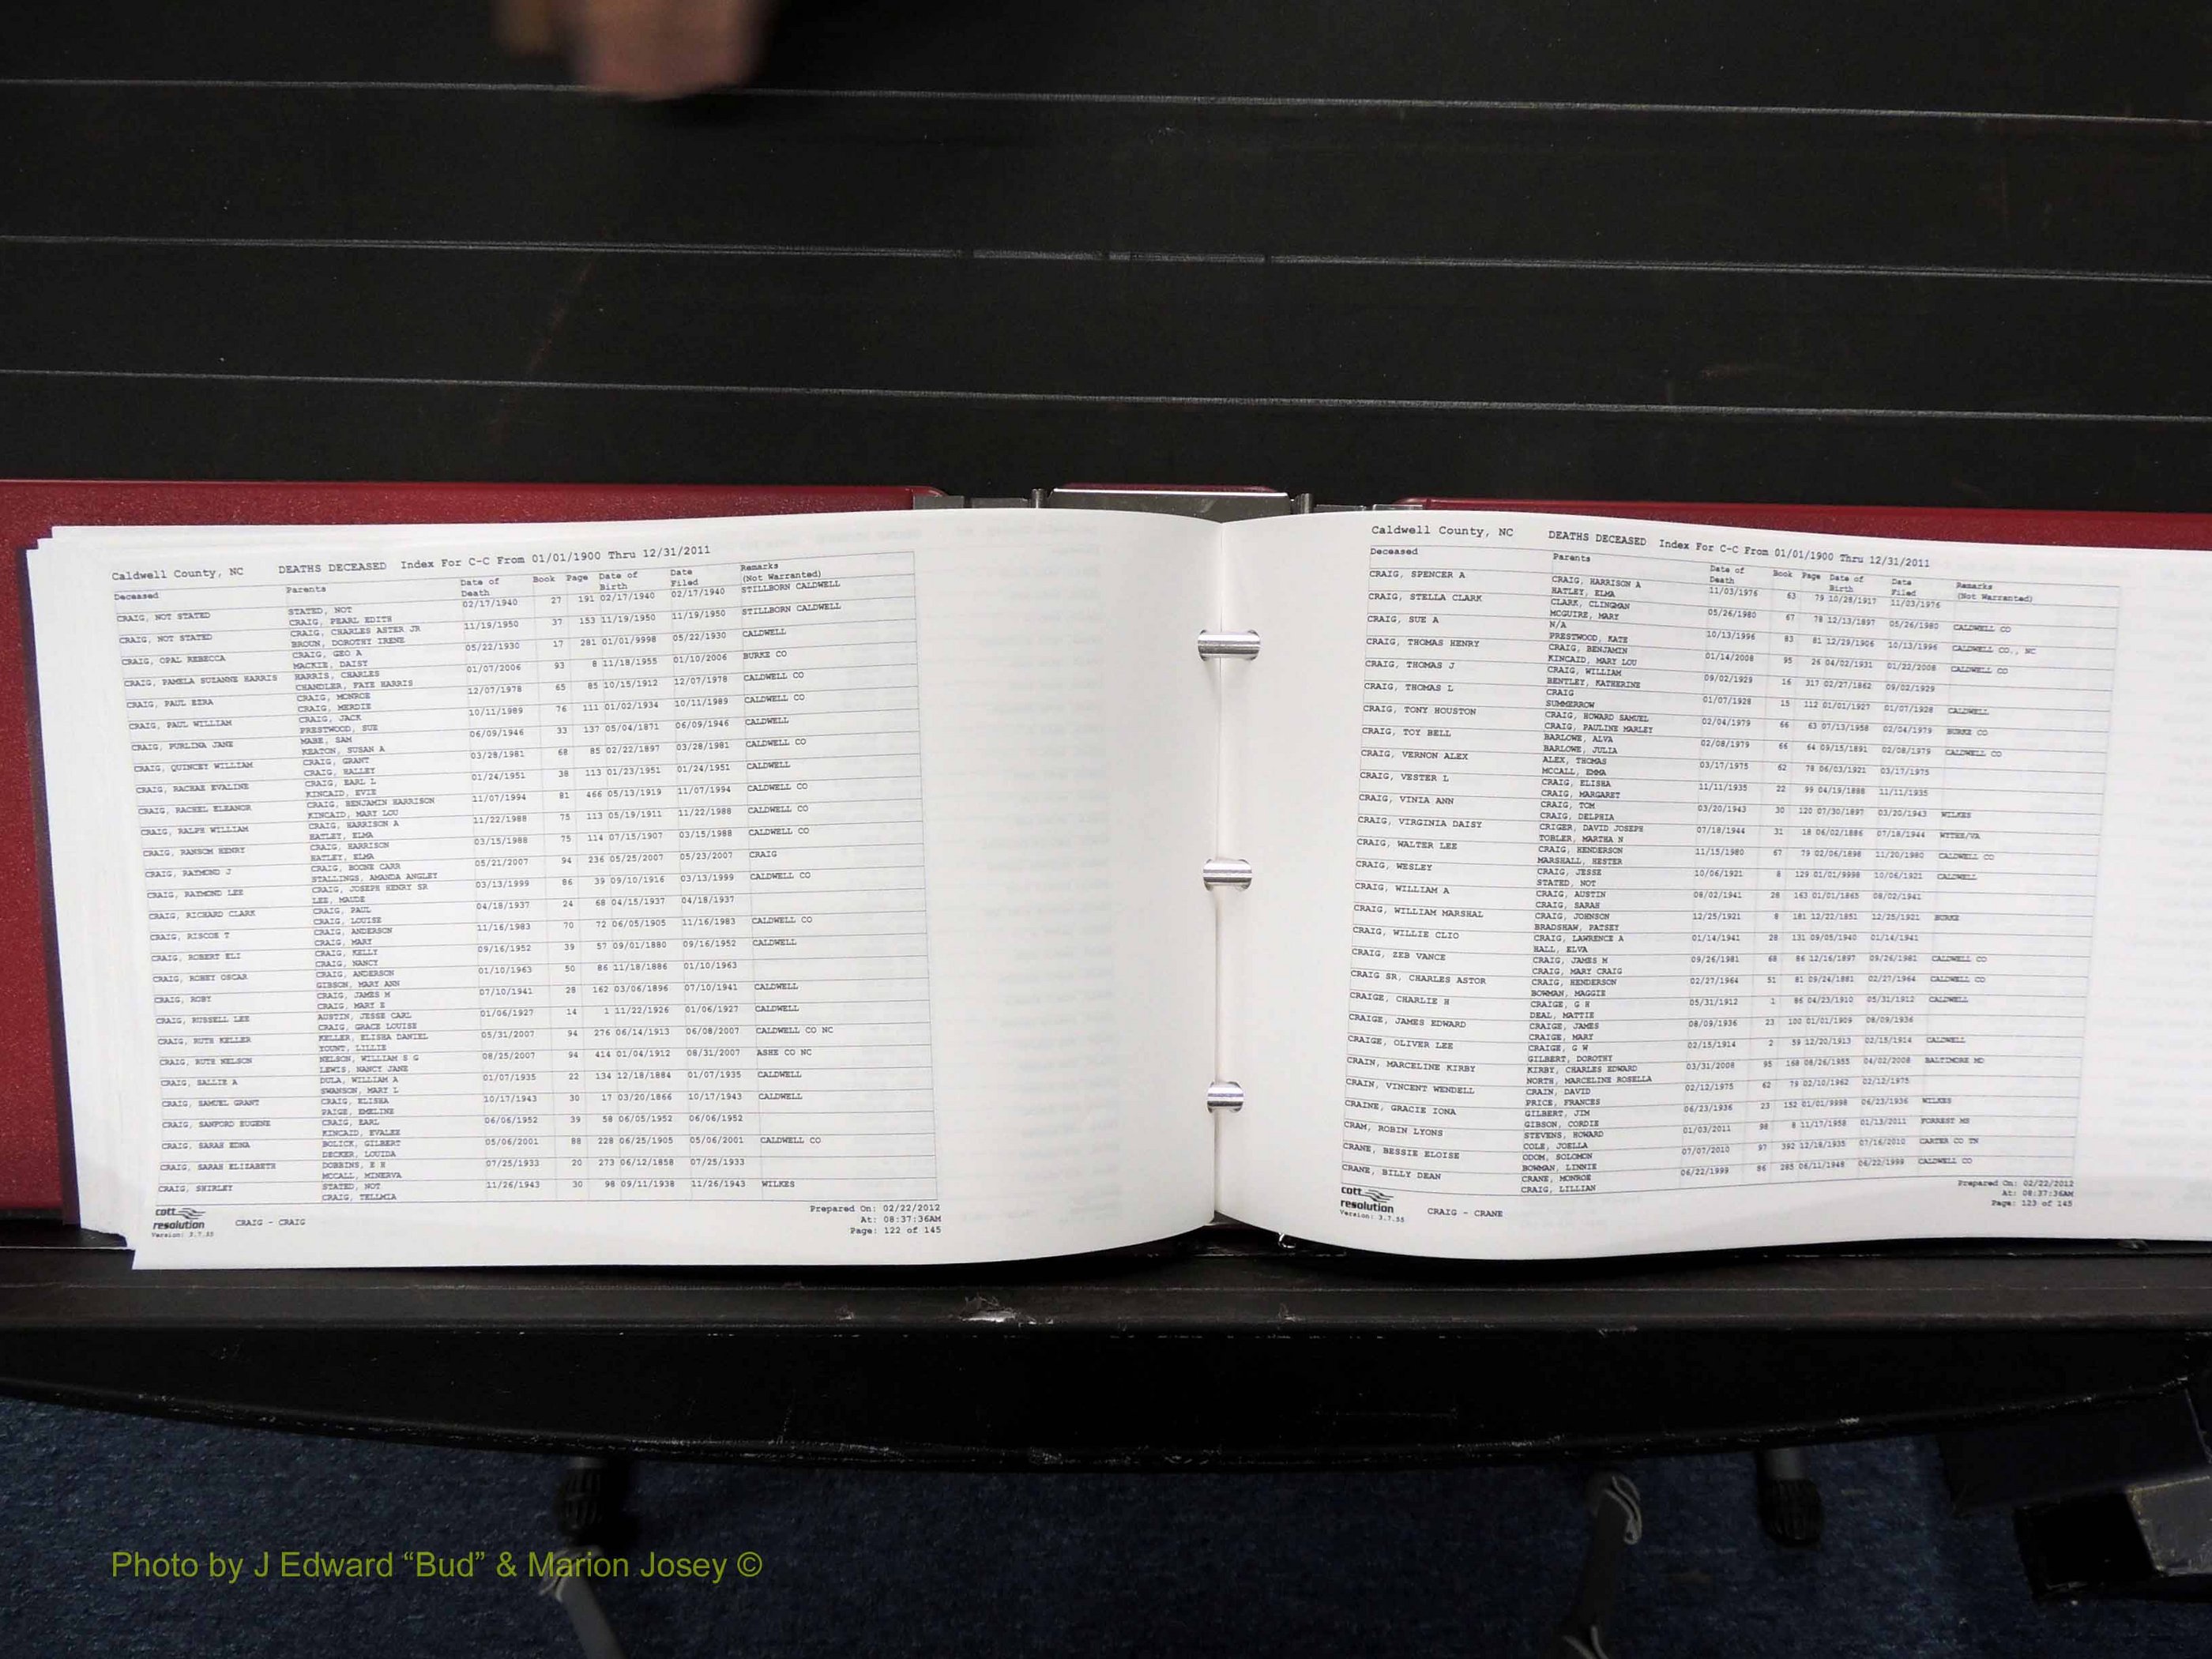 Caldwell County, NC DEATHS DECEASED Index For C-C From 01/01/1900 Thru 12/31/2011
Deceased Parents Date of Death Book Page Date of Birth Date Filed Remarks (Not Warranted)
CRAIG, NOT STATED STATED, NOT 02/17/1940 27 191 02/17/1940 02/17/1940 STILLBORN CALDWELL
CRAIG, PEARL EDITH
CRAIG, NOT STATED CRAIG, CHARLES ASTER JR 11/19/1950 37 153 11/19/1950 11/19/1950 STILLBORN CALDWELL
BROUN, DOROTHY IRENE
CRAIG, OPAL REBECCA CRAIG, GEO A 05/22/1930 17 281 01/01/9998 05/22/1930 CALDWELL
MACKIE, DAISY
CRAIG, PAMELA SUZANNE HARRIS HARRIS, CHARLES 01/07/2006 93 8 11/18/1955 01/10/2006 BURKE CO
CHANDLER, FAYE HARRIS
CRAIG, PAUL EZRA CRAIG, MONROE 12/07/1978 65 85 10/15/1912 12/07/1978 CALDWELL CO
CRAIG, MERDIE
CRAIG, PAUL WILLIAM CRAIG, JACK 10/11/1989 76 111 01/02/1934 10/11/1989 CALDWELL CO
PRESTWOOD, SUE
CRAIG, PURLINA JANE MABE, SAM 06/09/1946 33 137 05/04/1871 06/09/1946 CALDWELL
KEATON, SUSAN A
CRAIG, QUINCEY WILLIAM CRAIG, GRANT 03/28/1981 68 85 02/22/1897 03/28/1981 CALDWELL CO
CRAIG, HALLEY
CRAIG, RACHAE EVALINE CRAIG, EARL L 01/24/1951 38 113 01/23/1951 01/24/1951 CALDWELL
KINCAID, EVIE
CRAIG, RACHEL ELEANOR CRAIG, BENJAMIN HARRISON 11/07/1994 81 466 05/13/1919 11/07/1994 CALDWELL CO
KINCAID, MARY LOU
CRAIG, RALPH WILLIAM CRAIG, HARRISON A 11/22/1988 75 113 05/19/1911 11/22/1988 CALDWELL CO
HATLEY, ELMA
CRAIG, RANSOM HENRY CRAIG, HARRISON 03/15/1988 75 114 07/15/1907 03/15/1988 CALDWELL CO
HATLEY, ELMA
CRAIG, RAYMOND J CRAIG, BOONE CARR 05/21/2007 94 236 05/25/2007 05/23/2007 CRAIG
STALLINGS, AMANDA ANGLEY
CRAIG, RAYMOND LEE CRAIG, JOSEPH HENRY SR 03/13/1999 86 39 09/10/1916 03/13/1999 CALDWELL CO
LEE, MAUDE
CRAIG, RICHARD CLARK CRAIG, PAUL 04/18/1937 24 68 04/15/1937 04/18/1937
CRAIG, LOUISE
CRAIG, RISCOE T CRAIG, ANDERSON 11/16/1983 70 72 06/05/1905 11/16/1983 CALDWELL CO
CRAIG, MARY
CRAIG, ROBERT ELI CRAIG, KELLY 09/16/1952 39 57 09/01/1880 09/16/1952 CALDWELL
CRAIG, NANCY
CRAIG, ROBEY OSCAR CRAIG, ANDERSON 01/10/1963 50 86 11/18/1886 01/10/1963
GIBSON, MARY ANN
CRAIG, ROBY CRAIG, JAMES M 07/10/1941 28 162 03/06/1896 07/10/1941 CALDWELL
CRAIG, MARY E
CRAIG, RUSSELL LEE AUSTIN, JESSE CARL 01/06/1927 14 1 11/22/1926 01/06/1927 CALDWELL
CRAIG, GRACE LOUISE
CRAIG, RUTH KELLER KELLER, ELISHA DANIEL 05/31/2007 94 276 06/14/1913 06/08/2007 CALDWELL CO NC
YOUNT, LILLIE
CRAIG, RUTH NELSON NELSON, WILLIAM S G 08/25/2007 94 414 01/04/1912 08/31/2007 ASHE CO NC
LEWIS, NANCY JANE
CRAIG, SALLIE A DULA, WILLIAM A 01/07/1935 22 134 12/18/1884 01/07/1935 CALDWELL
SWANSON, MARY L
CRAIG, SAMUEL GRANT CRAIG, ELISHA 10/17/1943 30 17 03/20/1866 10/17/1943 CALDWELL
PAIGE, EMELINE
CRAIG, SANFORD EUGENE CRAIG, EARL 06/06/1952 39 58 06/05/1952 06/06/1952
KINCAID, EVALEE
CRAIG, SARAH EDNA BOLICK, GILBERT 05/06/2001 88 228 06/25/1905 05/06/2001 CALDWELL CO
DECKER, LOUIDA
CRAIG, SARAH ELIZABETH DOBBINS, E H 07/25/1933 20 273 06/12/1858 07/25/1933
MCCALL, MINERVA
CRAIG, SHIRLEY STATED, NOT 11/26/1943 30 98 09/11/1938 11/26/1943 WILKES
CRAIG, TELLMIA
cott resolution
Version: 3.7.55
CRAIG - CRAIG
Prepared On: 02/22/2012
At: 08:37:36AM
Page: 122 of 145
Caldwell County, NC DEATHS DECEASED Index For C-C From 01/01/1900 Thru 12/31/2011
Deceased Parents Date of Death Book Page Date of Birth Date Filed Remarks (Not Warranted)
CRAIG, SPENCER A CRAIG, HARRISON A 11/03/1976 63 79 10/28/1917 11/03/1976
HATLEY, ELMA
CRAIG, STELLA CLARK CLARK, CLINGMAN 05/26/1980 67 78 12/13/1897 05/26/1980 CALDWELL CO
MCGUIRE, MARY
CRAIG, SUE A N/A 10/13/1996 83 81 12/29/1906 10/13/1996 CALDWELL CO., NC
PRESTWOOD, KATE
CRAIG, THOMAS HENRY CRAIG, BENJAMIN 01/14/2008 95 26 04/02/1931 01/22/2008 CALDWELL CO
KINCAID, MARY LOU
CRAIG, THOMAS J CRAIG, WILLIAM 09/02/1929 16 317 02/27/1862 09/02/1929
BENTLEY, KATHERINE
CRAIG, THOMAS L CRAIG 01/07/1928 15 112 01/01/1927 01/07/1928 CALDWELL
SUMMERROW
CRAIG, TONY HOUSTON CRAIG, HOWARD SAMUEL 02/04/1979 66 63 07/13/1958 02/04/1979 BURKE CO
CRAIG, PAULINE MARLEY
CRAIG, TOY BELL BARLOWE, ALVA 02/08/1979 66 64 09/15/1891 02/08/1979 CALDWELL CO
BARLOWE, JULIA
CRAIG, VERNON ALEX ALEX, THOMAS 03/17/1975 62 78 06/03/1921 03/17/1975
MCCALL, EMMA
CRAIG, VESTER L CRAIG, ELISHA 11/11/1935 22 99 04/19/1888 11/11/1935
CRAIG, MARGARET
CRAIG, VINIA ANN CRAIG, TOM 03/20/1943 30 120 07/30/1897 03/20/1943 WILKES
CRAIG, DELPHIA
CRAIG, VIRGINIA DAISY CRIGER, DAVID JOSEPH 07/18/1944 31 18 06/02/1886 07/18/1944 WYTHE/VA
TOBLER, MARTHA N
CRAIG, WALTER LEE CRAIG, HENDERSON 11/15/1980 67 79 02/06/1898 11/20/1980 CALDWELL CO
MARSHALL, HESTER
CRAIG, WESLEY CRAIG, JESSE 10/06/1921 8 129 01/01/9998 10/06/1921 CALDWELL
STATED, NOT
CRAIG, WILLIAM A CRAIG, AUSTIN 08/02/1941 28 163 01/01/1865 08/02/1941
CRAIG, SARAH
CRAIG, WILLIAM MARSHAL CRAIG, JOHNSON 12/25/1921 8 181 12/22/1851 12/25/1921 BURKE
BRADSHAW, PATSEY
CRAIG, WILLIE CLIO CRAIG, LAWRENCE A 01/14/1941 28 131 09/05/1940 01/14/1941
HALL, ELVA
CRAIG, ZEB VANCE CRAIG, JAMES M 09/26/1981 68 86 12/16/1897 09/26/1981 CALDWELL CO
CRAIG, MARY CRAIG
CRAIG SR, CHARLES ASTOR CRAIG, HENDERSON 02/27/1964 51 81 09/24/1881 02/27/1964 CALDWELL CO
BOWMAN, MAGGIE
CRAIGE, CHARLIE H CRAIGE, G H 05/31/1912 1 86 04/23/1910 05/31/1912 CALDWELL
DEAL, MATTIE
CRAIGE, JAMES EDWARD CRAIGE, JAMES 08/09/1936 23 100 01/01/1909 08/09/1936
CRAIGE, MARY
CRAIGE, OLIVER LEE CRAIGE, G W 02/15/1914 2 59 12/20/1913 02/15/1914 CALDWELL
GILBERT, DOROTHY
CRAIN, MARCELINE KIRBY KIRBY, CHARLES EDWARD 03/31/2008 95 168 08/26/1955 04/02/2008 BALTIMORE MD
NORTH, MARCELINE ROSELLA
CRAIN, VINCENT WENDELL CRAIN, DAVID 02/12/1975 62 79 02/10/1962 02/12/1975
PRICE, FRANCES
CRAINE, GRACIE IONA GILBERT, JIM 06/23/1936 23 152 01/01/9998 06/23/1936 WILKES
GIBSON, CORDIE
CRAM, ROBIN LYONS STEVENS, HOWARD 01/03/2011 98 8 11/17/1958 01/13/2011 FORREST MS
COLE, JOELLA
CRANE, BESSIE ELOISE ODOM, SOLOMON 07/07/2010 97 392 12/18/1935 07/16/2010 CARTER CO TN
BOWMAN, LINNIE
CRANE, BILLY DEAN CRANE, MONROE 06/22/1999 86 285 06/11/1948 06/22/1999 CALDWELL CO
CRAIG, LILLIAN
cott resolution
Version: 3.7.55
CRAIG - CRANE
Prepared On: 02/22/2012
At: 08:37:36AM
Page: 123 of 145
Photo by J Edward “Bud” & Marion Josey ©